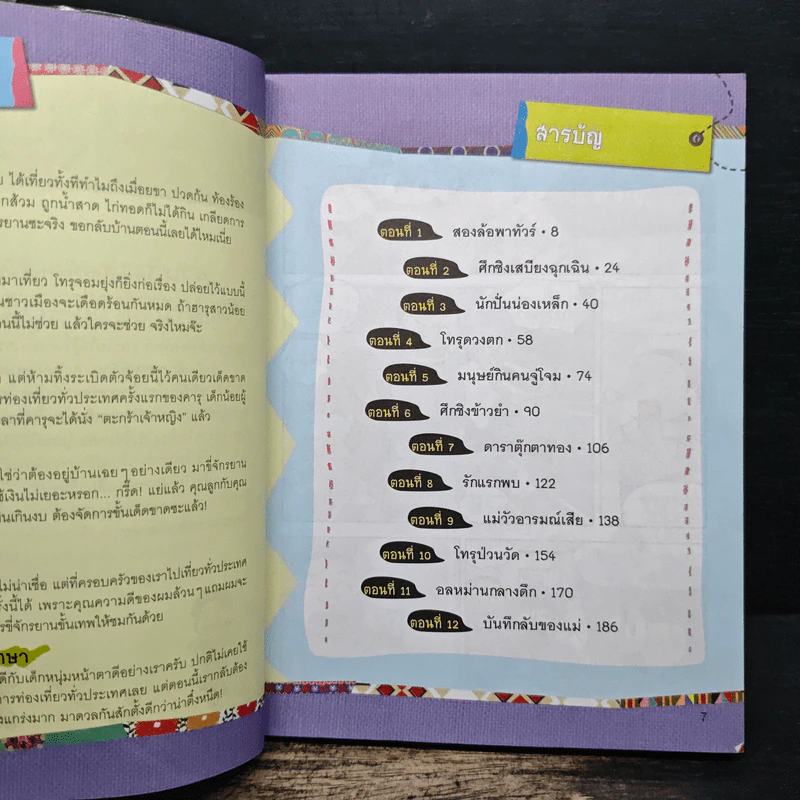 ได้เที่ยวทั้งทีทำไมถึงเมื่อยขา ปวดก้น ท้องร้อง
กส้วม ถูกน้ำสาด ไก่ทอดก็ไม่ได้กิน เกลียดการ
รยานซะจริง ขอกลับบ้านตอนนี้เลยได้ไหมเนี่ย
มาเที่ยว โทรุจอมยุ่งก็ยิ่งก่อเรื่อง ปล่อยไว้แบบนี้
นชาวเมืองจะเดือดร้อนกันหมด ถ้าฮารุสาวน้อย
อนนี้ไม่ช่วย แล้วใครจะช่วย จริงไหมจ๊ะ
แต่ห้ามทิ้งระเบิดตัวจ้อยนี้ไว้คนเดียวเด็ดขาด
ารท่องเที่ยวทั่วประเทศครั้งแรกของคารุ เด็กน้อยผู้
ลาที่คารุจะได้นั่ง “ตะกร้าเจ้าหญิง” แล้ว
ใช่ว่าต้องอยู่บ้านเฉยๆ อย่างเดียว มาขี่จักรยาน
ช้เงินไม่เยอะหรอก... กรี๊ด! แย่แล้ว คุณลูกกับคุณ
งินเกินงบ ต้องจัดการขั้นเด็ดขาดซะแล้ว!
ไม่น่าเชื่อ แต่ที่ครอบครัวของเราไปเที่ยวทั่วประเทศ
รั้งนี้ได้ เพราะคุณความดีของผมล้วนๆ แถมผมจะ
ารขี่จักรยานขั้นเทพให้ชมกันด้วย
าษา
ดีกับเด็กหนุ่มหน้าตาดีอย่างเราครับ ปกติไม่เคยใช้
การท่องเที่ยวทั่วประเทศเลย แต่ตอนนี้เรากลับต้อง
งแกร่งมาก มาดวลกันสักตั้งดีกว่าน่าตึ๋งหนืด!
สารบัญ
ตอนที่ 1 สองล้อพาทัวร์ • 8
ตอนที่ 2 ศึกชิงเสบียงฉุกเฉิน • 24
ตอนที่ 3 นักปั่นน่องเหล็ก • 40
ตอนที่ 4 โทรุดวงตก • 58
ตอนที่ 5 มนุษย์กินคนจู่โจม • 74
ตอนที่ 6 ศึกชิงข้าวยำ • 90
ตอนที่ 7 ดาราตุ๊กตาทอง • 106
ตอนที่ 8 รักแรกพบ • 122
ตอนที่ 9 แม่วัวอารมณ์เสีย • 138
ตอนที่ 10 โทรุป่วนวัด • 154
ตอนที่ 11 อลหม่านกลางดึก • 170
ตอนที่ 12 บันทึกลับของแม่ • 186
7